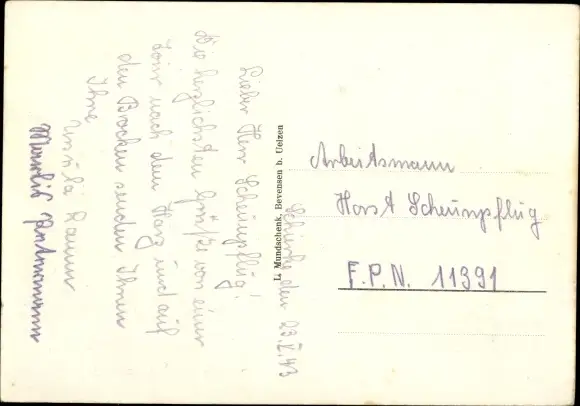 Schierke den 23.V.43
Lieber Herr Scheunpflug!
Die herzlichsten Grüße von einer
Tour nach dem Harz und auf
den Brocken senden Ihnen
Ihre
Ursula
L. Mundschenk, Bevensen b. Uelzen
Arbeitsmann
Horst Scheunpflug
F.P.N. 11391